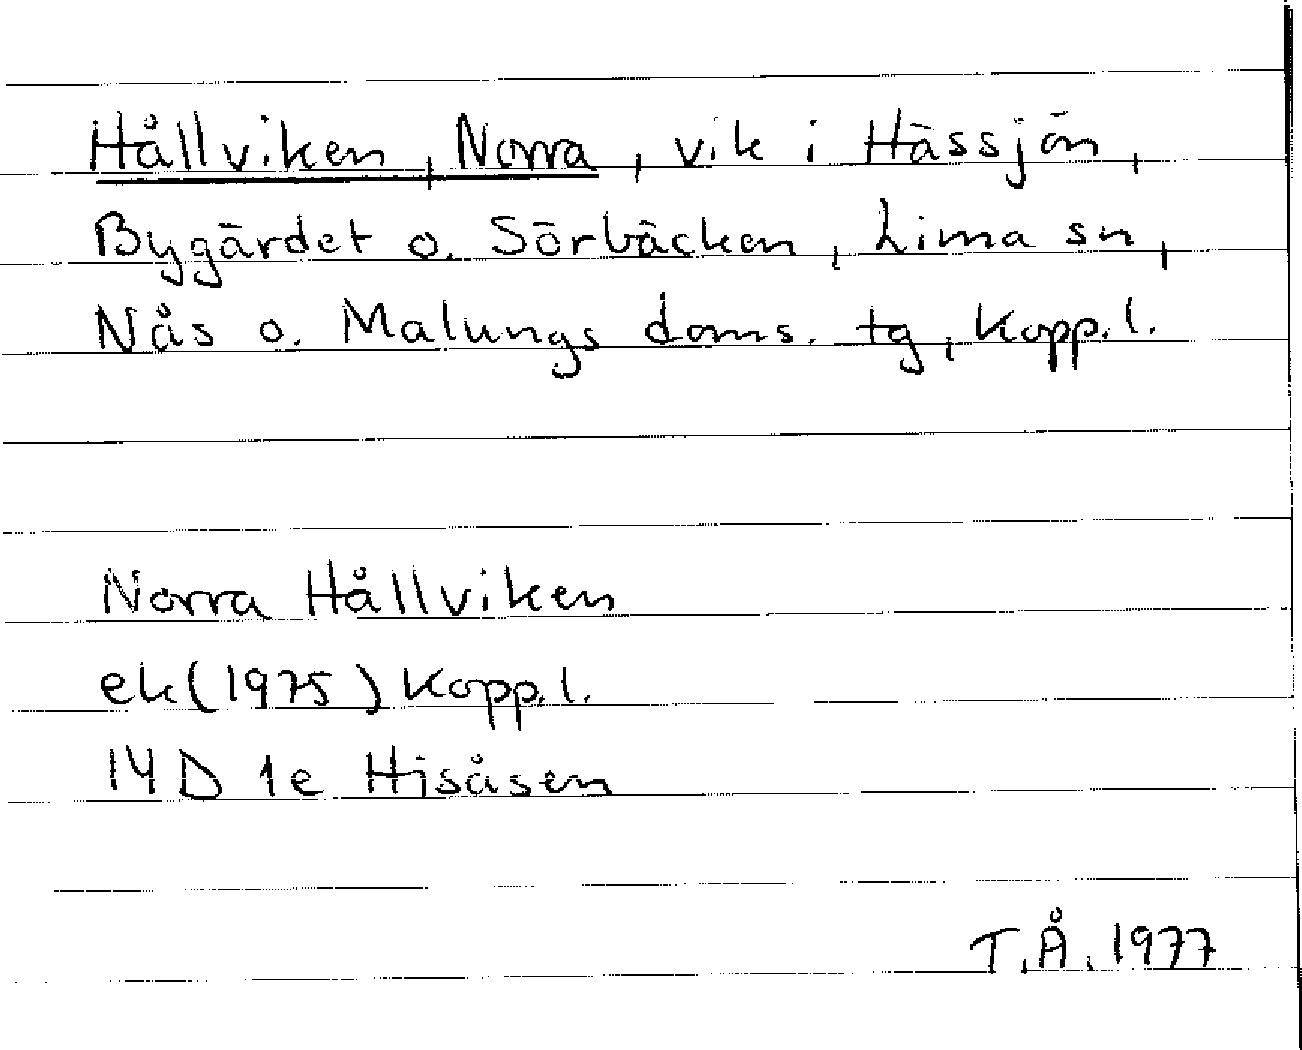 Hållviken, Norra, vik i Hässjön,
Bygärdet o. Sörbäcken, Lima sn,
Nås o. Malungs doms. tg, Kopp.l.
Norra Hållviken
ek(1975) Kopp.l.
14 D 1e Hisåsen
T.Å. 1977